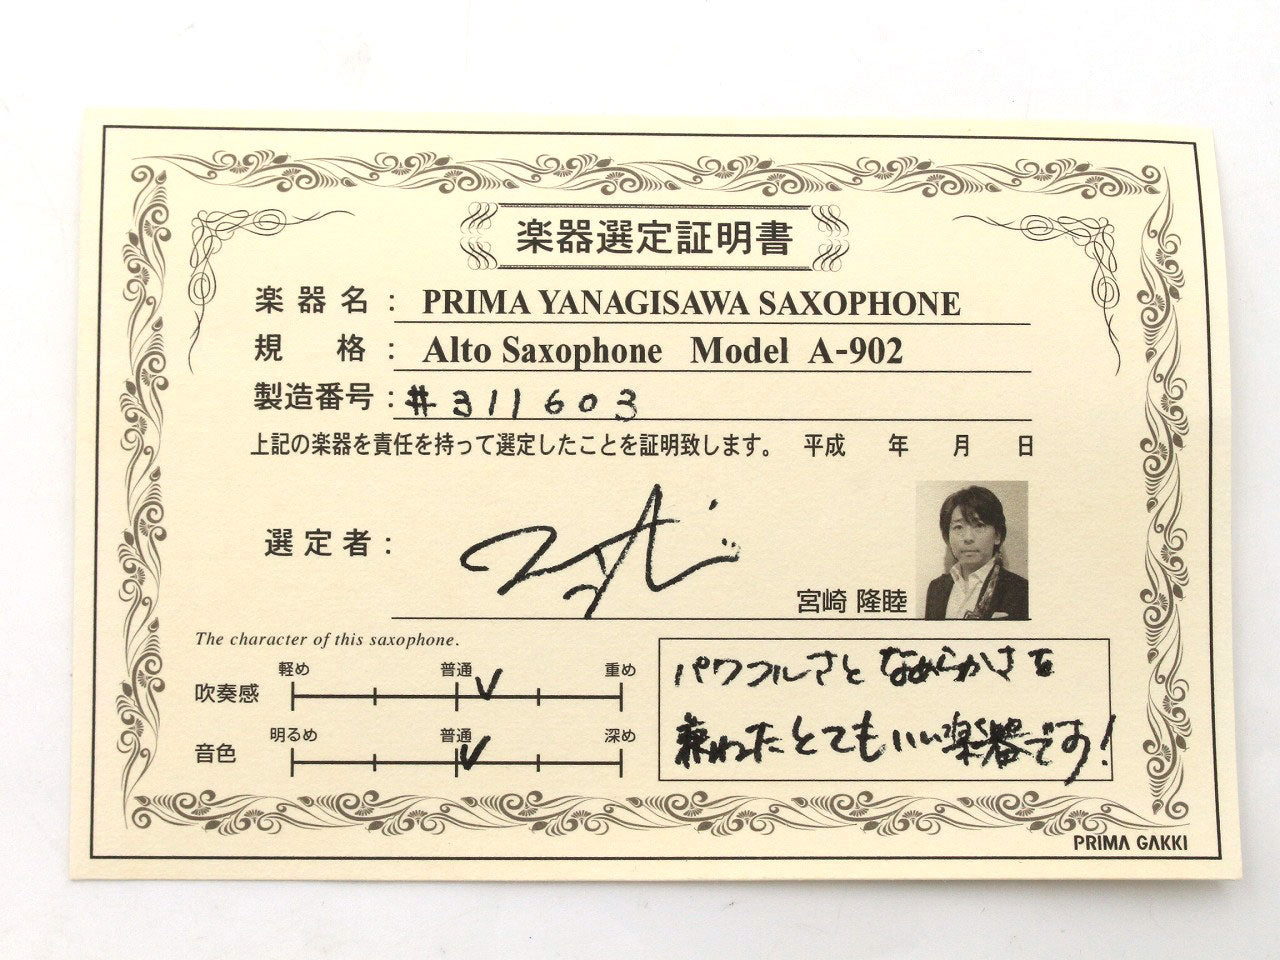 楽器選定証明書
楽器名： PRIMA YANAGISAWA SAXOPHONE
規　格： Alto Saxophone Model A-902
製造番号：#311603
上記の楽器を責任を持って選定したことを証明致します。 平成　年　月　日
選定者：
宮崎 隆睦
The character of this saxophone.
軽め 普通 重め
吹奏感
明るめ 普通 深め
音色
パワフルさとなめらかさを
兼ねたとてもいい楽器です!
PRIMA GAKKI